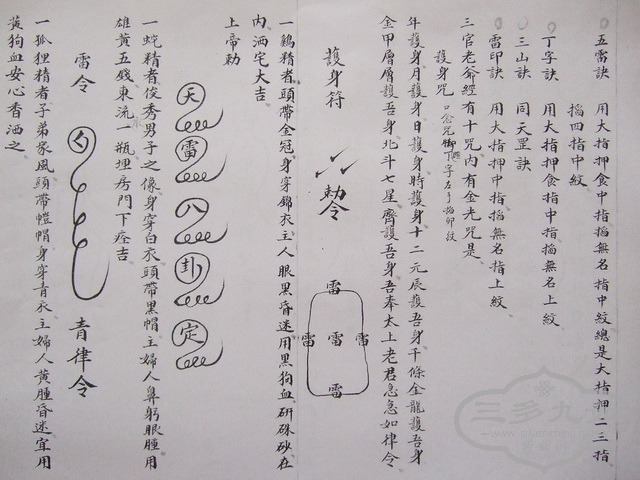 五雷訣　用大指押食中指掐無名指中紋總是大指押二三指
掐四指中紋
丁字訣　用大指押食指中指掐無名上紋
三山訣　同天罡訣
雷印訣　用大指押中指掐無名指上紋
三官老爺經有十咒內有金光咒是
護身咒
年護身月護身日護身時護身十二元辰護吾身千條金龍護吾身
金甲層層護吾身北斗七星齊護吾身吾奉太上老君急急如律令
護身符　勅令　雷雷雷雷雷
一鷄精者頭帶金冠身穿錦衣主人眼黑昏迷用黑狗血研硃砂在
內洒宅大吉
上帝勅
天雷八卦定
一蛇精者俊秀男子之像身穿白衣頭帶黑帽主婦人鼻眼腫用
雄黃五錢東流一瓶埋房門下痊吉
雷令　青律令
一狐狸精者子弟家風頭帶帽身穿青衣主婦人黃腫昏迷宜用
黃狗血安心香洒之
三多九